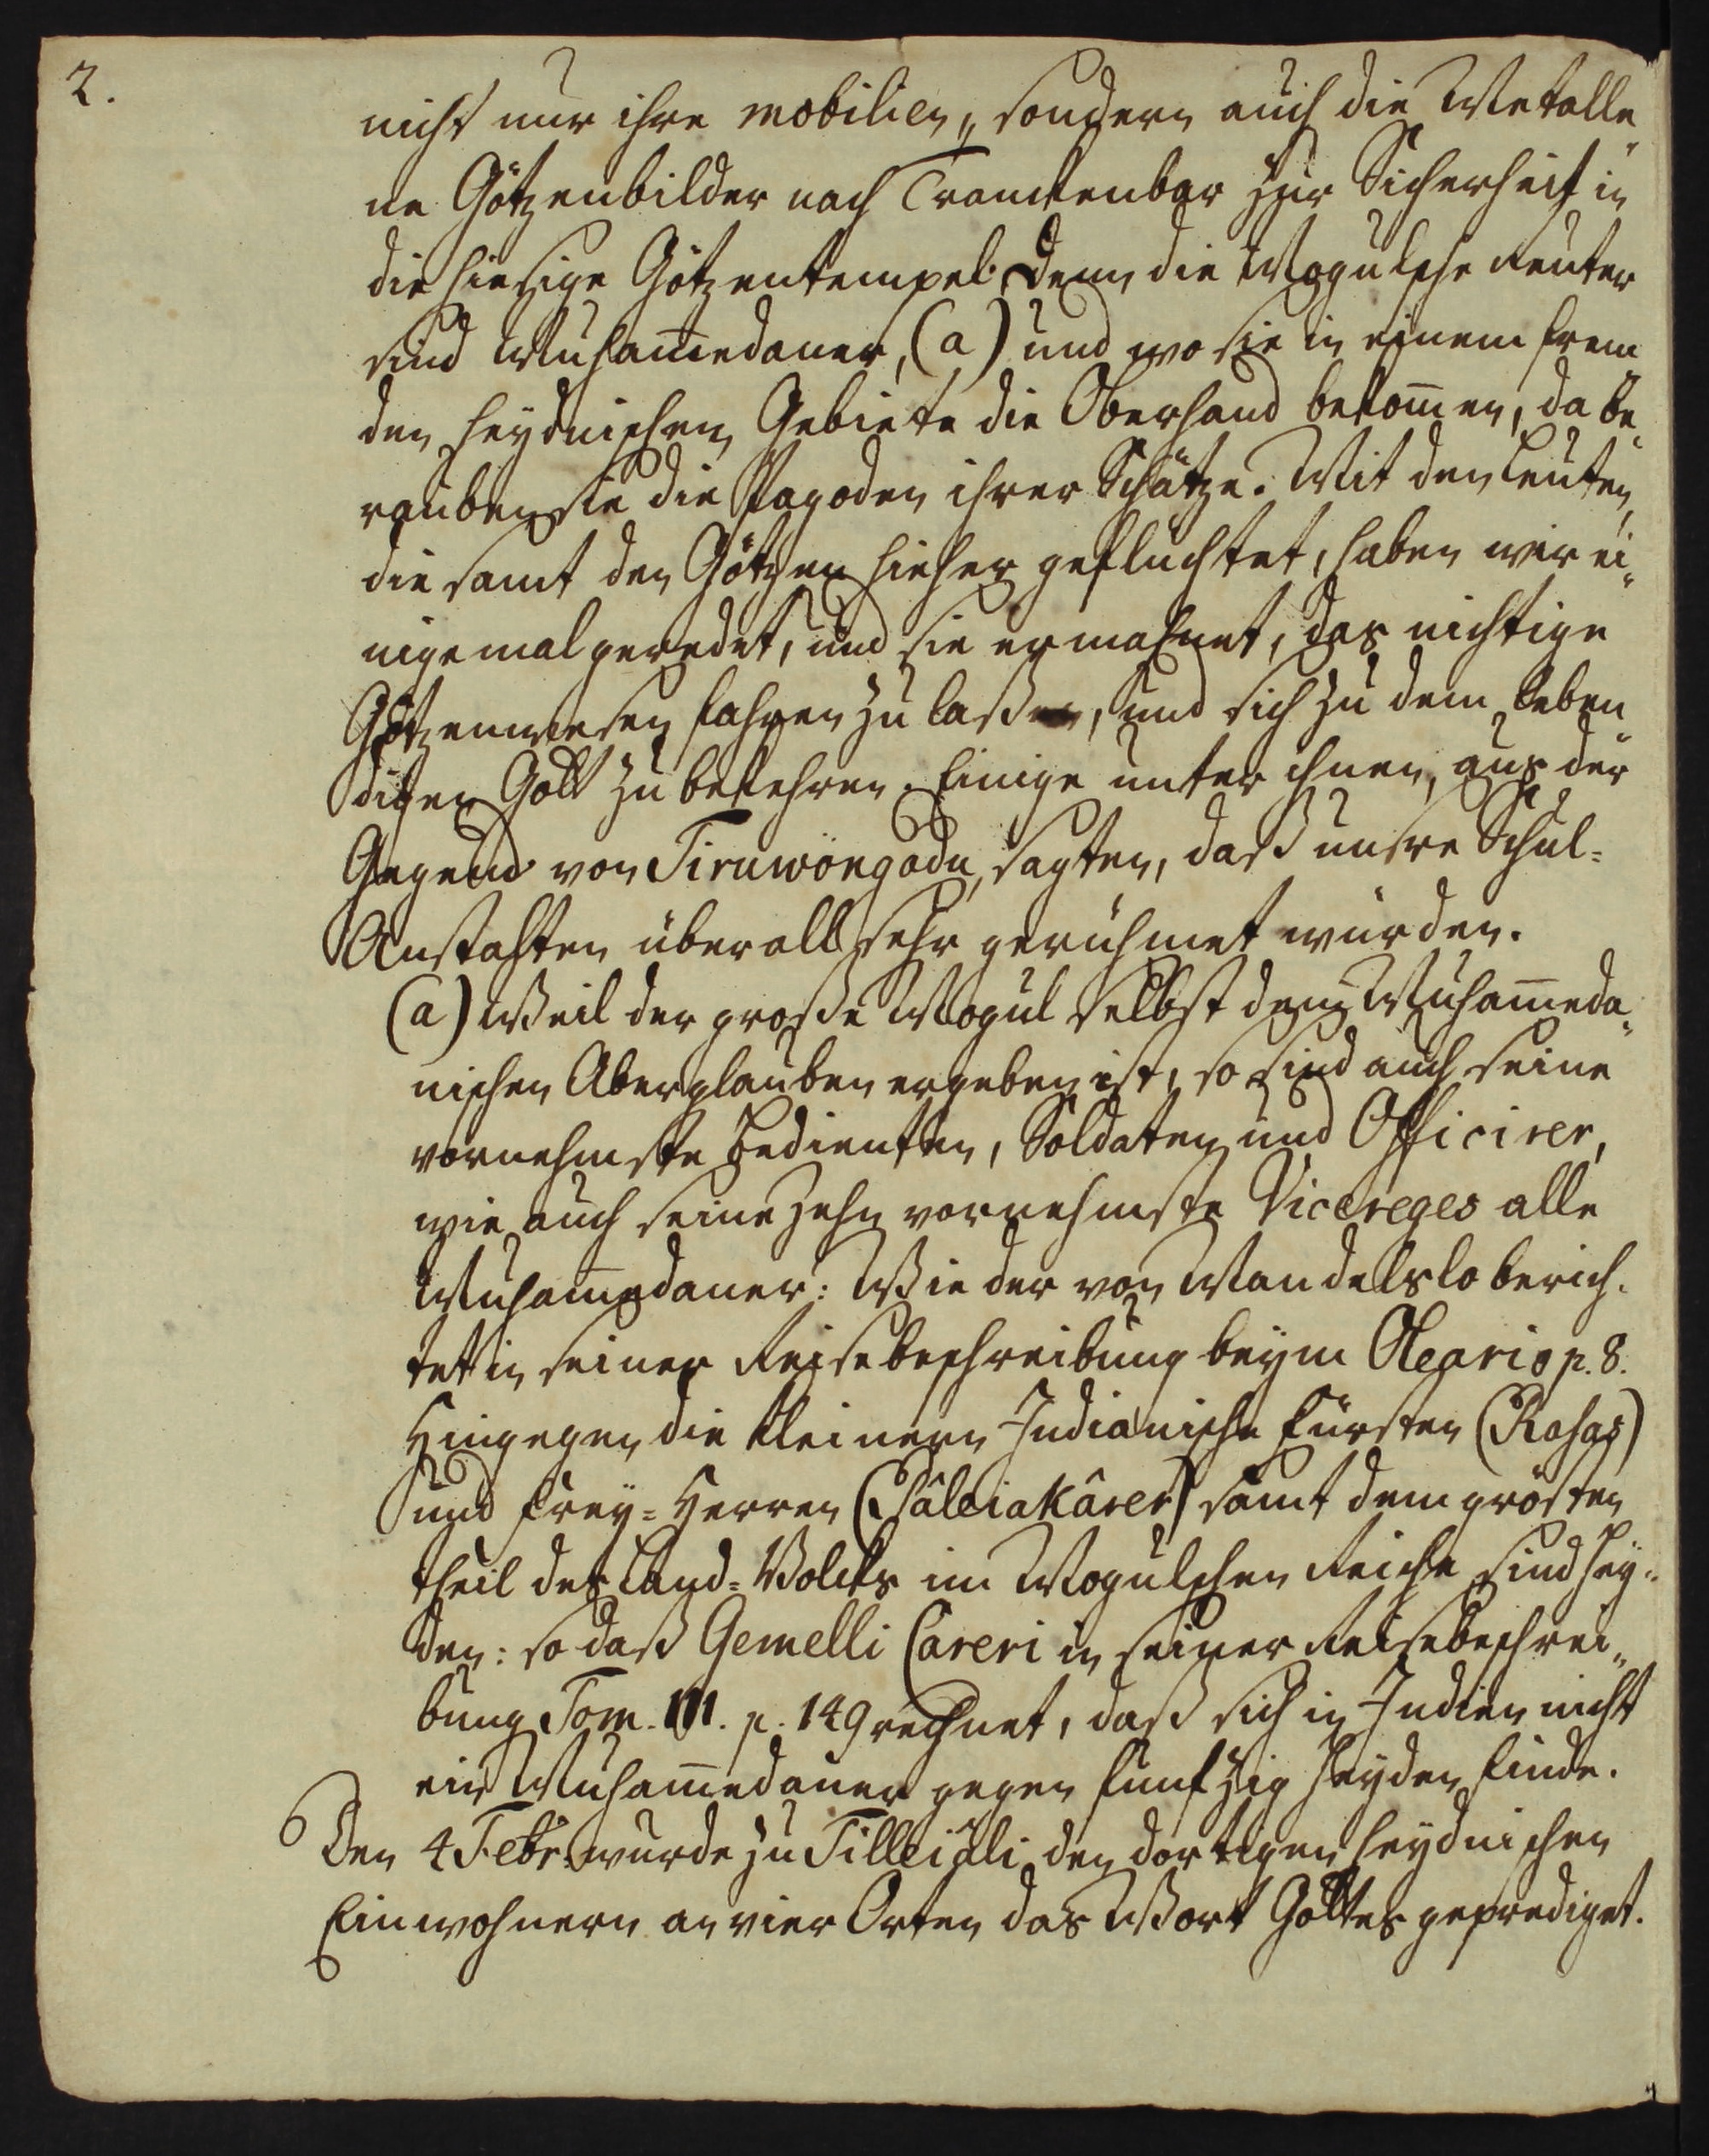 2.
nicht nur ihre mobilien, sondern auch die Metalle„
ne Götzenbilder nach Tranckenbar zur Sicherheit in
die hiesige Götzentempel. Denn die Mogulsche Reuter
sind Muham̅edaner, (a) und wo sie in einem frem„
den heydnischen Gebiete die Oberhand bekom̅en, da be„
rauben sie die Pagoden ihrer Schätze. Mit den Leuten,
die samt den Götzen hieher geflüchtet, haben wir ei„
nigemal geredet, und sie ermahnet, das nichtige
Götzenwesen fahren zu laßen, und sich zu dem leben„
digen Gott zu bekehren. Einige unter ihnen, aus der
Gegend von Tiruwöngadu, sagten, daß unsre Schul=
Anstalten überall sehr gerühmet würden.
(a) Weil der große Mogul selbst dem Muham̅eda„
nischen Aberglauben ergeben ist, so sind auch seine
vornehmste Bedienten, Soldaten und Officirer,
wie auch seine zehn vornehmste Vicereges alle
Muham̅edaner: Wie der von Mandelslo berich„
tet in seiner Reisebeschreibung beym Oleario p. 8.
Hingegen die kleinern Indianische Fürsten (Rajas)
und Frey=Herren (Pâleiakârer) samt dem grösten
theil des Land=Volcks im Mogulschen Reiche sind Hey„
den: so daß Gemelli Careri in seiner Reisebeschrei„
bung Tom. III. p. 149 rechnet, daß sich in Indien nicht
ein Muham̅edaner gegen funfzig Heyden finde.
Den 4 Febr. wurde zu Tilleiâli den dortigen heydnischen
Einwohnern an vier Orten das Wort Gottes geprediget.